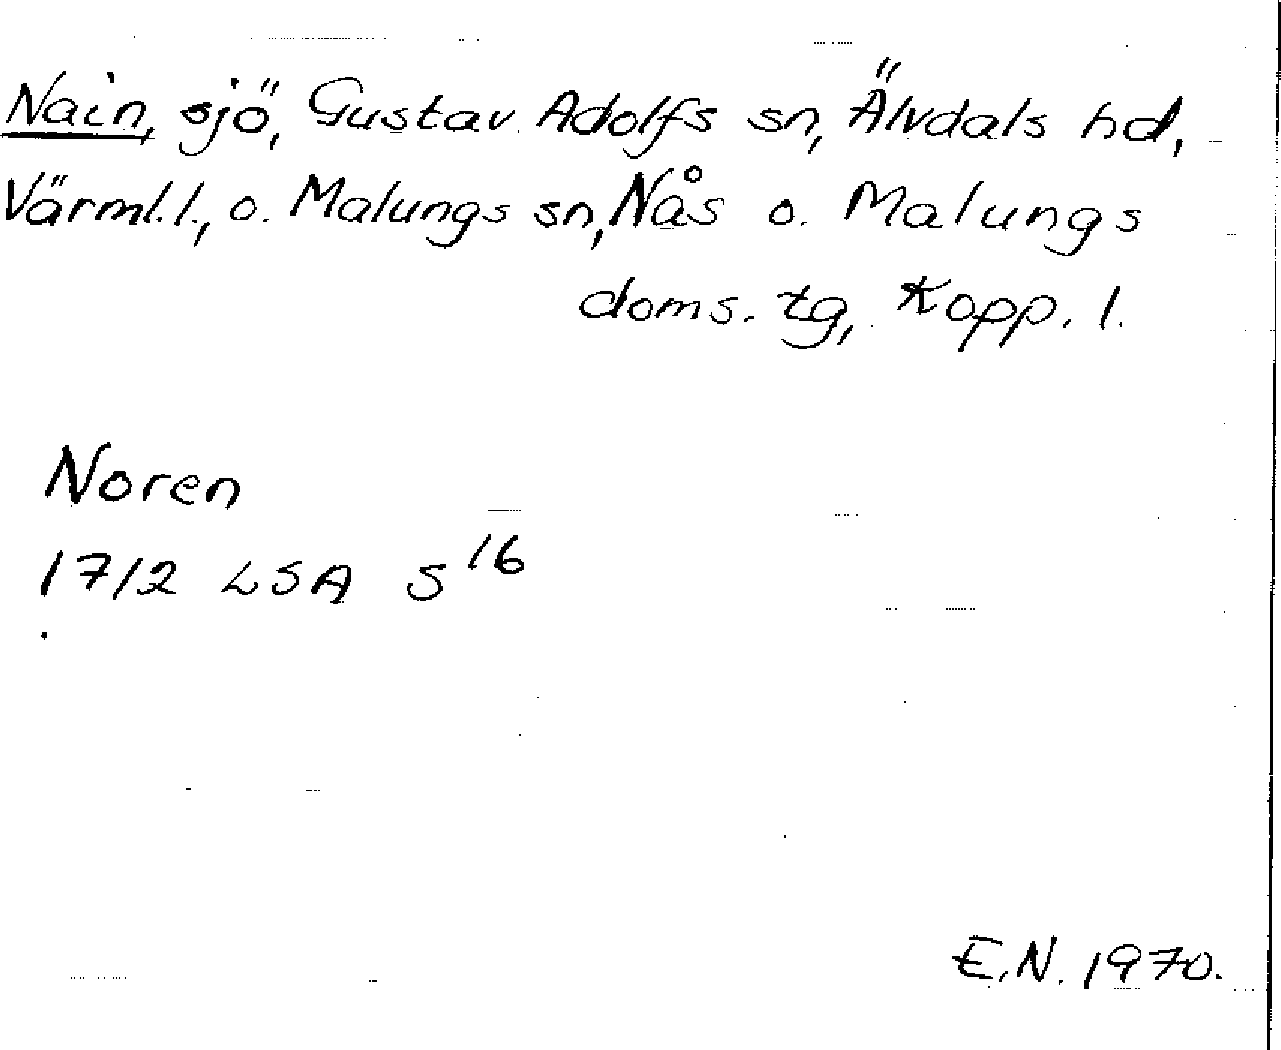 Nain, sjö, Gustav Adolfs sn, Älvdals hd,
Värml. l., o. Malungs sn, Nås o. Malungs
doms. tg, Kopp. l.
Noren
1712 LSA S 16
E.N. 1970.